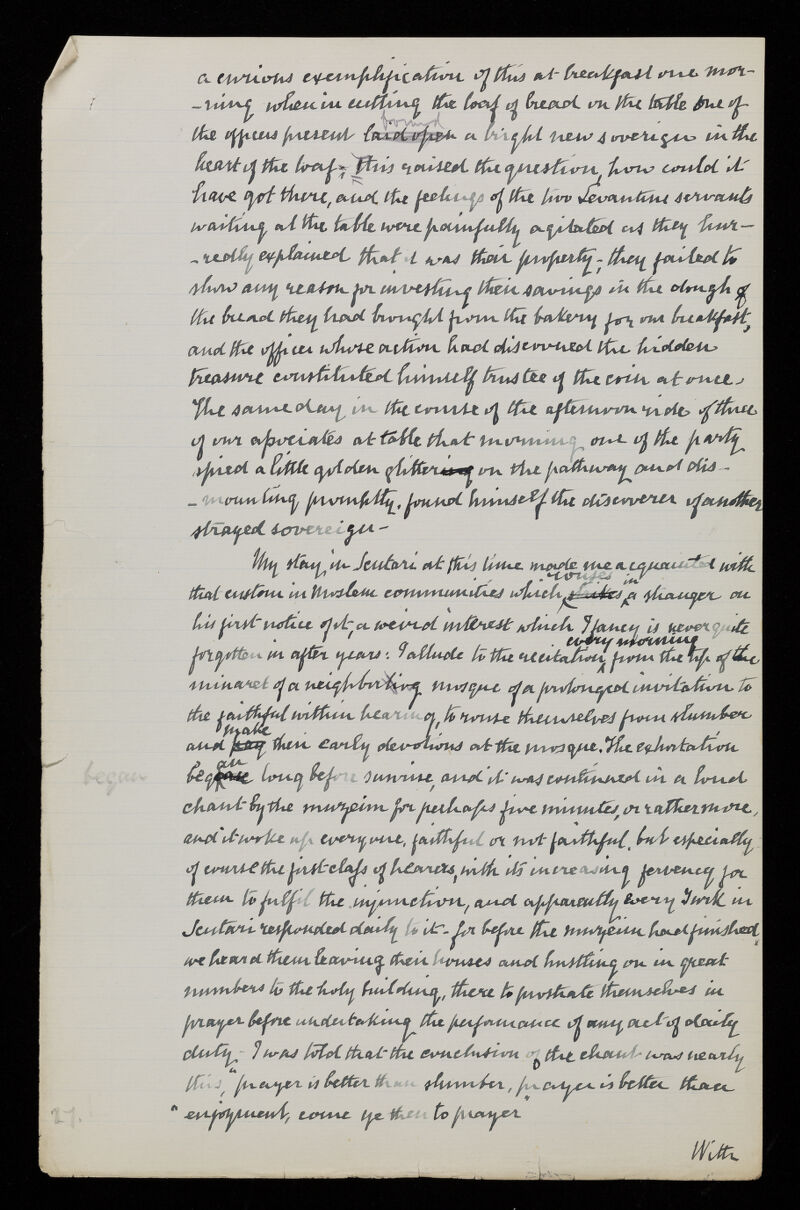 a curious exemplification of this at breakfast one mor-
-ning when in cutting the loaf of bread on the table one of
found
the officers present laid open a bright new soverign in the
heart of the loaf; This raised the question, how could it
have got there, and the feelings of the two Levantine servants
waiting at the table were painfully agitated as they hur-
-redly explained that it was their property; they failed to
show any reason for investing their savings in the dough of
the bread they had brought from the bakery for our breakfast,
and the officer whose action had discovered the hidden
treasure constituted himself trustee of the coin at once.
The same day in the course of the afternoon ride of three
of our associates at table that morning one of the party
spied a little golden glittering on the pathway and dis-
-mounting promptly, found himself the discoverer of another
strayed sovereign-
My stay in Scutari at this time made me acquainted with
rouses in
that custom in Moslem communities which strikes a stranger on
his first notice of it, a weird interest which I fancy is never quite
every morning
forgotten in after years: I allude to the recitation from the top of the
minaret of a neighboring mosque of a prolonged invitation to
the faithful within hearing, to rouse themselves from slumber
make
and pay their early devotions at the mosque. The exhortation
an
began began long before sunrise, and it was continued in a loud
chant by the muzeim for perhaps five minutes, or rather more,
and it woke up everyone, faithful or not faithful, but especially
of course the first class of hearers, with its increasing fervency for
them to fulfil the injunction, and apparently every Turk in
Scutari responded daily to it - for before the muzeim had finished,
we heard them leaving their houses and hustling on in great
numbers to the holy building, there to prostrate themselves in
prayer before undertaking the performance of any act of daily
duty- I was told that the conclusion of the chant was nearly
this, "prayer is better than slumber, prayer is better than
27. "enjoyment, come ye then to prayer"
With